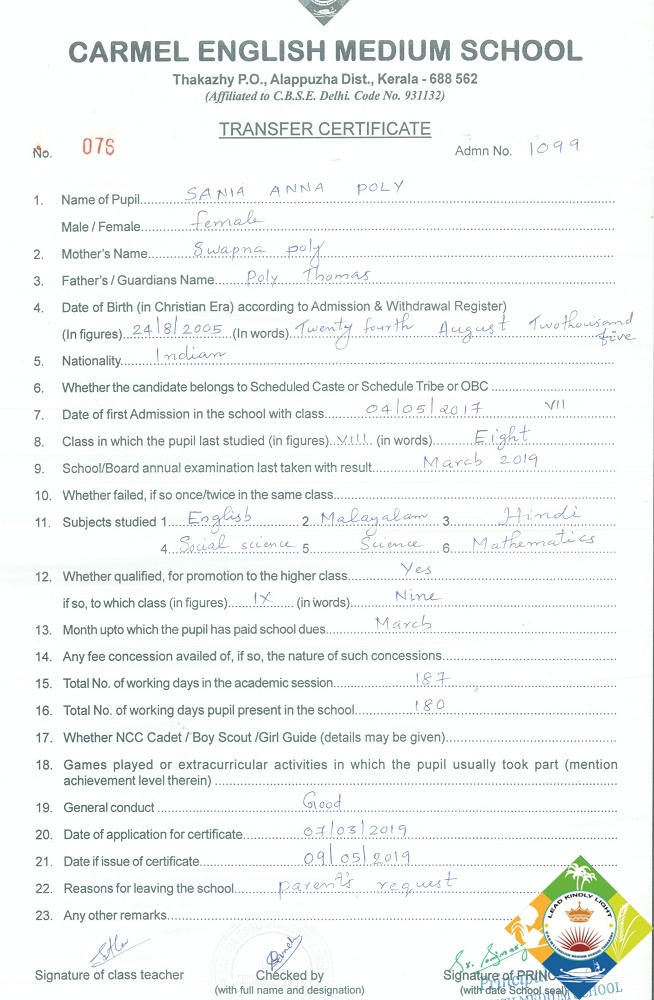 CARMEL ENGLISH MEDIUM SCHOOL
Thakazhy P.O., Alappuzha Dist., Kerala - 688 562
(Affiliated to C.B.S.E. Delhi. Code No. 931132)
TRANSFER CERTIFICATE
No. 076 Admn No. 1099
1. Name of Pupil SANIA ANNA POLY
Male / Female female
2. Mother's Name Swapna poly
3. Father's / Guardians Name Poly Thomas
4. Date of Birth (in Christian Era) according to Admission & Withdrawal Register)
(In figures) 24/8/2005 (In words) Twenty fourth August Twothousand
five
5. Nationality Indian
6. Whether the candidate belongs to Scheduled Caste or Schedule Tribe or OBC
7. Date of first Admission in the school with class 04/05/2017 VII
8. Class in which the pupil last studied (in figures) VIII (in words) Eight
9. School/Board annual examination last taken with result March 2019
10. Whether failed, if so once/twice in the same class
11. Subjects studied 1. English 2. Malayalam 3. Hindi
4. Social science 5. Science 6. Mathematics
12. Whether qualified, for promotion to the higher class Yes
if so, to which class (in figures) IX (in words) Nine
13. Month upto which the pupil has paid school dues March
14. Any fee concession availed of, if so, the nature of such concessions
15. Total No. of working days in the academic session 187
16. Total No. of working days pupil present in the school 180
17. Whether NCC Cadet / Boy Scout /Girl Guide (details may be given)
18. Games played or extracurricular activities in which the pupil usually took part (mention
achievement level therein)
19. General conduct Good
20. Date of application for certificate 07/03/2019
21. Date if issue of certificate 09/05/2019
22. Reasons for leaving the school parent's request
23. Any other remarks
LEAD KINDLY LIGHT
Signature of class teacher Checked by Signature of PRINC
(with full name and designation) (with date School seal)